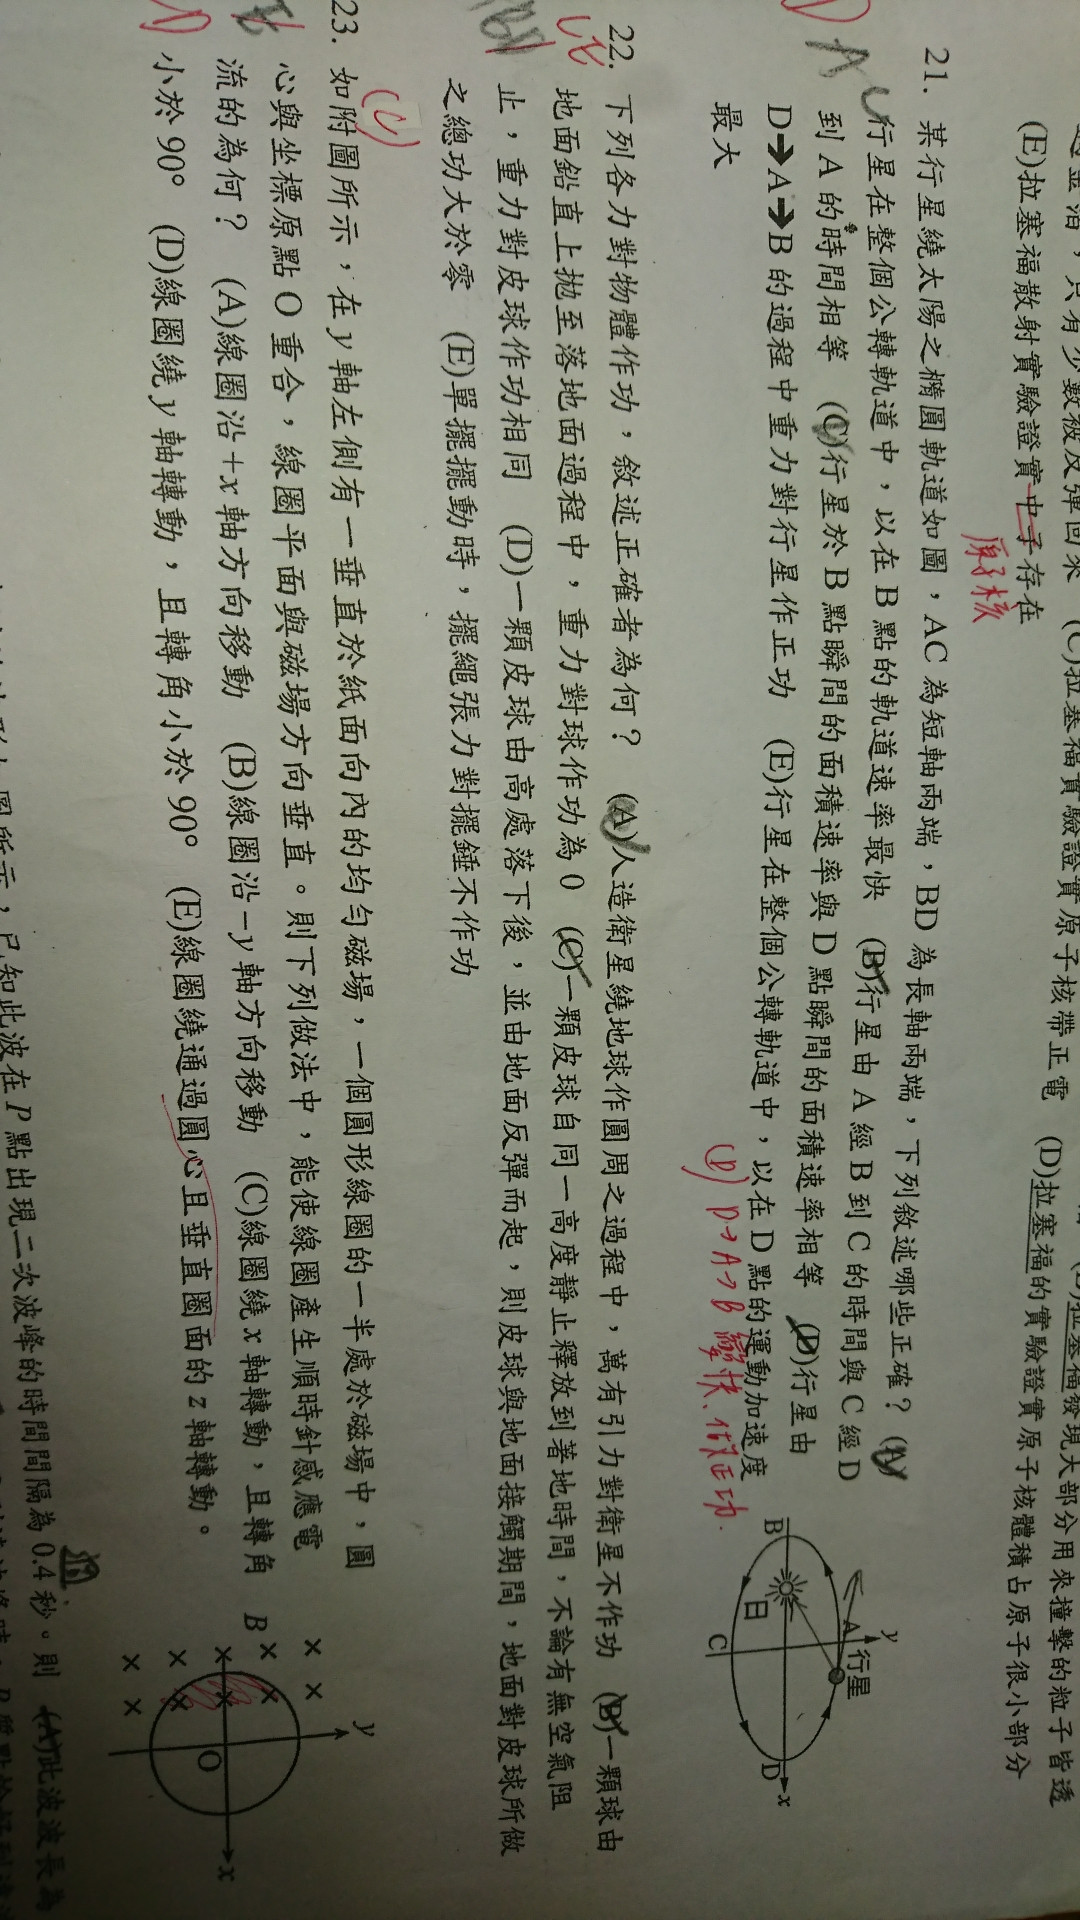 邊金箔，只有少數被反彈回來 (C)拉塞福實驗證實原子核帶正電 (D)拉塞福的實驗證實原子核體積占原子很小部分
(E)拉塞福散射實驗證實中子存在
原子核
21. 某行星繞太陽之橢圓軌道如圖，AC為短軸兩端，BD為長軸兩端，下列敘述哪些正確？ (A)
行星在整個公轉軌道中，以在B點的軌道速率最快 (B)行星由A經B到C的時間與C經D
到A的時間相等 (C)行星於B點瞬間的面積速率與D點瞬間的面積速率相等 (D)行星由
D→A→B的過程中重力對行星作正功 (E)行星在整個公轉軌道中，以在D點的運動加速度
最大
(D) D→A→B 變快、作正功.
y
A
行星
B
日
D
x
C
22. 下列各力對物體作功，敘述正確者為何？ (A)人造衛星繞地球作圓周之過程中，萬有引力對衛星不作功 (B)一顆球由
地面鉛直上拋至落地面過程中，重力對球作功為0 (C)一顆皮球自同一高度靜止釋放到著地時間，不論有無空氣阻
止，重力對皮球作功相同 (D)一顆皮球由高處落下後，並由地面反彈而起，則皮球與地面接觸期間，地面對皮球所做
之總功大於零 (E)單擺擺動時，擺繩張力對擺錘不作功
(C)
23. 如附圖所示，在y軸左側有一垂直於紙面向內的均勻磁場，一個圓形線圈的一半處於磁場中，圓
心與坐標原點O重合，線圈平面與磁場方向垂直。則下列做法中，能使線圈產生順時針感應電
流的為何？ (A)線圈沿+x軸方向移動 (B)線圈沿−y軸方向移動 (C)線圈繞x軸轉動，且轉角
小於90° (D)線圈繞y軸轉動，且轉角小於90° (E)線圈繞通過圓心且垂直圈面的z軸轉動。
y
B
O
x
圖所示，已知此波在P點出現二次波峰的時間間隔為0.4秒。則 (A)此波波長為